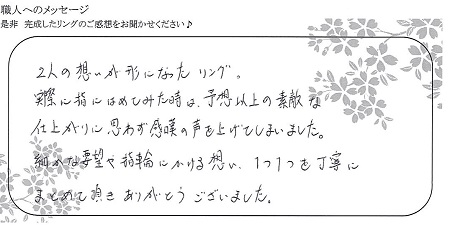 職人へのメッセージ
是非 完成したリングのご感想をお聞かせください♪
2人の想いが形になったリング。
実際に指にはめてみた時は、予想以上の素敵な
仕上がりに思わず感嘆の声を上げてしまいました。
細かな要望や指輪にかける想い、1つ1つを丁寧に
まとめて頂きありがとうございました。